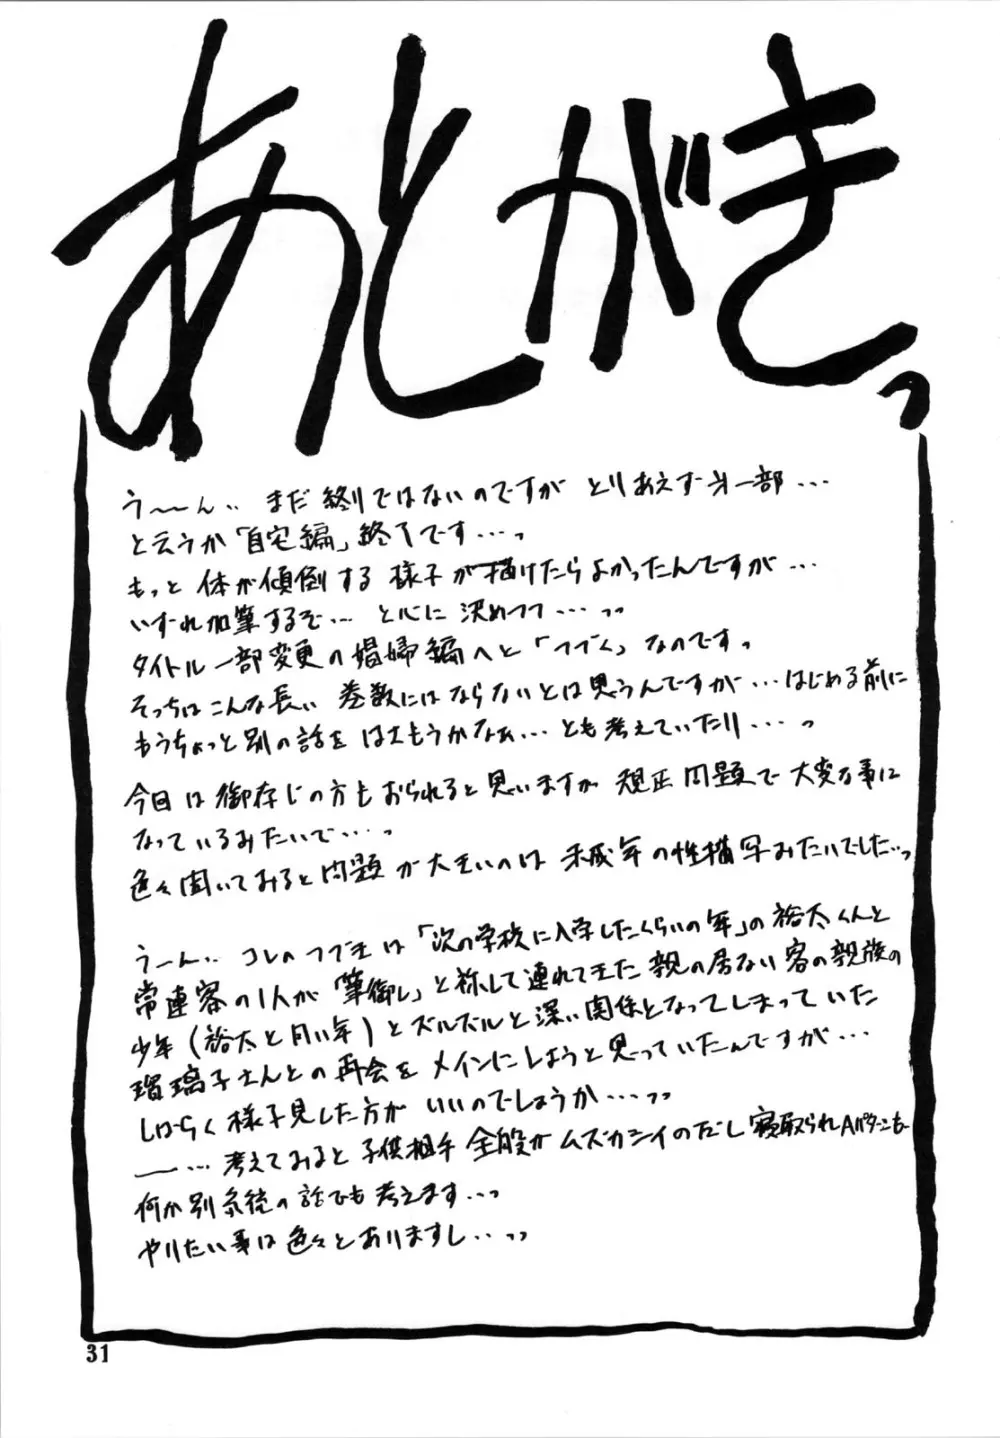 あとがきっ
う～ん‥ まだ終りではないのですが とりあえず第一部…
と云うか「自宅編」終了です…っ
もっと 体が傾倒する 様子が描けたらよかったんですが…
いずれ加筆するぞ… と心に 決めつつ…っっ
タイトル一部変更の娼婦編へと「つづく」なのです。
そっちはこんな長い 巻数にはならないとは思うんですが…はじめる前に
もうちょっと別の話をはさもうかなぁ… とも考えていたり…っ
今回は御存じの方もおられると思いますが 規正問題で大変な事に
なっているみたいで…っ
色々聞いてみると問題が大きいのは 未成年の性描写みたいでした‥っ
うーん‥ コレのつづきは「次の学校に入学したくらいの年」の裕太くんと
常連客の1人が「筆御し」と称して連れてきた親の居ない客の親族の
少年（裕太と同い年）とズルズルと深い関係となってしまっていた
瑠璃子さんとの再会をメインにしようと思っていたんですが…
しばらく様子見した方がいいのでしょうか…っっ
ー…考えてみると子供相手全般がムズカシイのだし寝取られAパターンも‥
何か別系統の話でも考えます…っ
やりたい事は色々とありますし‥っっ
31